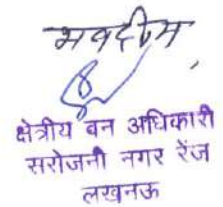 भवदीय
क्षेत्रीय वन अधिकारी
सरोजनी नगर रेंज
लखनऊ